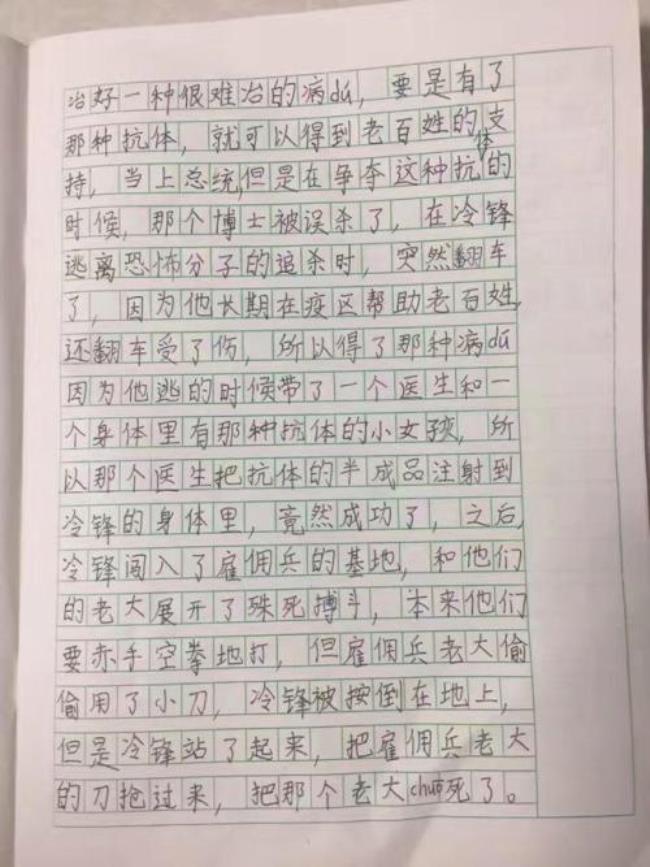 冶好一种很难冶的病dú，要是有了
那种抗体，就可以得到老百姓的支
持，当上总统，但是在争夺这种抗体的
时候，那个博士被误杀了，在冷锋
逃离恐怖分子的追杀时，突然翻车
了，因为他长期在疫区帮助老百姓，
还翻车受了伤，所以得了那种病dú
因为他逃的时候带了一个医生和一
个身体里有那种抗体的小女孩，所
以那个医生把抗体的半成品注射到
冷锋的身体里，竟然成功了，之后，
冷锋闯入了雇佣兵的基地，和他们
的老大展开了殊死搏斗，本来他们
要赤手空拳地打，但雇佣兵老大偷
偷用了小刀，冷锋被按倒在地上，
但是冷锋站了起来，把雇佣兵老大
的刀抢过来，把那个老大chuō死了。